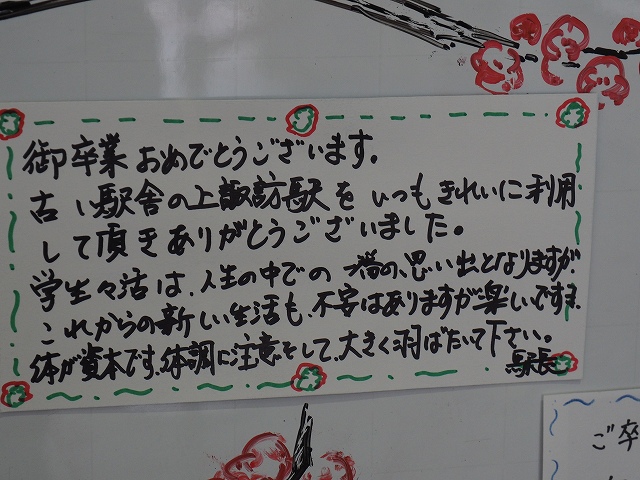 御卒業おめでとうございます。
古い駅舎の上諏訪駅をいつもきれいに利用
して頂きありがとうございました。
学生々活は、人生の中での一番の思い出となりますが、
これからの新しい生活も、不安はありますが楽しいです。
体が資本です、体調に注意をして、大きく羽ばたいて下さい。
駅長
ご卒